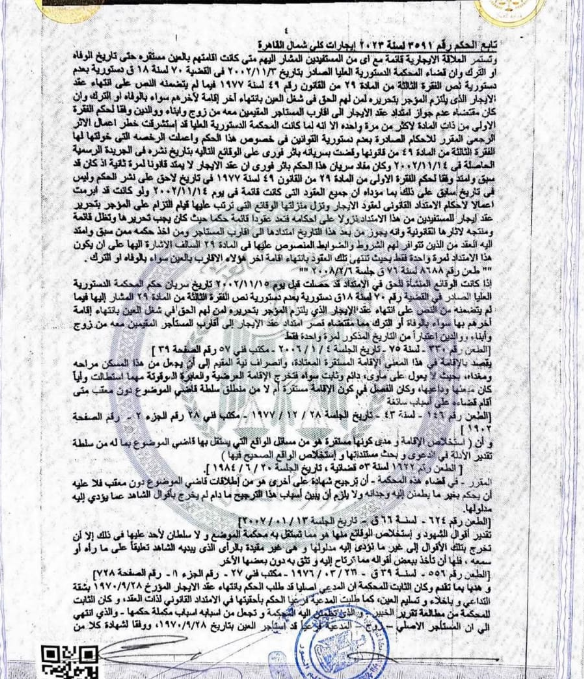 ٤
تابع الحكم رقم ٣٥٩١ لسنة ٢٠٢٣ إيجارات كلي شمال القاهرة
وتستمر العلاقة الايجارية قائمة مع اى من المستفيدين المشار اليهم متى كانت اقامتهم بالعين مستقره حتى تاريخ الوفاه
او الترك وان قضاء المحكمة الدستورية العليا الصادر بتاريخ ٢٠٠٢/١١/٣ في القضية ٧٠ لسنة ١٨ ق دستورية بعدم
دستورية نص الفقرة الثالثة من المادة ٢٩ من القانون رقم ٤٩ لسنة ١٩٧٧ فيما لم يتضمنه النص على انتهاء عقد
الايجار الذى يلتزم المؤجر بتحريره لمن لهم الحق في شغل العين بانتهاء أخر إقامة لأخرهم سواء بالوفاه او الترك وان
كان مقتضاه عدم جواز امتداد عقد الايجار الى اقارب المستأجر المقيمين معه من زوج وابناء ووالدين وفقا لحكم الفقرة
الاولى من ذات المادة لأكثر من مرة واحده الا انه لما كانت المحكمة الدستورية العليا قد إستشرفت خطر اعمال الاثر
الرجعى المقرر للاحكام الصادرة بعدم دستورية القوانين في خصوص هذا الحكم واعملت الرخصه التى خولتها لها
الفقرة الثالثة من المادة ٤٩ من قانونها وقضت بسريانه باثر فورى على الوقائع التاليه بتاريخ نشره في الجريدة الرسمية
الحاصلة في ٢٠٠٢/١١/١٤ وكان مفاد سريان هذا الحكم باثر فورى ان عقد الايجار لا يمتد قانونا لمرة ثانية اذ كان قد
سبق وامتد وفقا لحكم الفقرة الاولى من المادة ٢٩ من القانون ٤٩ لسنة ١٩٧٧ في تاريخ لاحق على نشر الحكم وليس
في تاريخ سابق على ذلك بما مؤداه ان جميع العقود التى كانت قائمة في يوم ٢٠٠٢/١١/١٤ ولو كانت قد ابرمت
اعمالا لاحكام الامتداد القانونى لعقود الايجار وتزل منزلتها الوقائع التى ترتب عليها قيام التزام على المؤجر بتحرير
عقد ايجار للمستفيدين من هذا الامتداد نزولا على احكامه فتعد عقودا قائمة حكما حيث كان يجب تحريرها وتظل قائمة
ومنتجه لاثارها القانونية وانه يجوز من بعد هذا التاريخ امتدادها الى اقارب المستاجر ومن اخذ حكمه ممن سبق وامتد
اليه العقد من الذين تتوافر لهم الشروط والضوابط المنصوص عليها في المادة ٢٩ السالف الاشارة اليها على ان يكون
هذا الامتداد لمرة واحدة فقط بحيث تنتهى تلك العقود بانتهاء اقامة اخر هؤلاء الاقارب بالعين سواء بالوفاه او الترك .
"" طعن رقم ٨٦٨٨ لسنة ٧٦ ق جلسة ٢٠٠٨/٢/٦ ""
إذا كانت الوقائع المنشأة للحق في الامتداد قد حصلت قبل يوم ٢٠٠٢/١١/١٥ تاريخ سريان حكم المحكمة الدستورية
العليا الصادر في القضية رقم ٧٠ لسنة ١٨ق دستورية بعدم دستورية نص الفقرة الثالثة من المادة ٢٩ المشار إليها فيما
لم يتضمنه من النص على انتهاء عقد الإيجار الذي يلتزم المؤجر بتحريره لمن لهم الحق في شغل العين بانتهاء إقامة
آخرهم بها سواء بالوفاة أو الترك مما مقتضاه قصر امتداد عقد الإيجار إلى أقارب المستأجر المقيمين معه من زوج
وأبناء، ووالدين اعتباراً من التاريخ المذكور لمرة واحدة فقط
[الطعن رقم ٣٣٠ - لسنة ٧٥ - تاريخ الجلسة ٤ / ١ / ٢٠٠٦ - مكتب فني ٥٧ رقم الصفحة ٣٩ ]
يقصد بالإقامة في هذا المعنى الإقامة المستقرة المعتادة، وانصراف نية المقيم إلى أن يجعل من هذا المسكن مراحه
ومغداه، بحيث لا يعول على مأوى، دائم وثابت سواه فتخرج الإقامة العرضية والعابرة الموقوتة مهما استطالت وأياً
كان مبعثها ودواعيها، وكان الفصل في كون الإقامة مستقرة أم لا من منطلق سلطة قاضي الموضوع دون معقب متى
أقام قضاءه على أسباب سائغة
[الطعن رقم ١٤٦ - لسنة ٤٣ - تاريخ الجلسة ٢٨ / ١٢ / ١٩٧٧ - مكتب فني ٢٨ رقم الجزء ٢ - رقم الصفحة
١٩٠٢ ]
و أن ( استخلاص الإقامة و مدى كونها مستقرة هو من مسائل الواقع التي يستقل بها قاضي الموضوع بما له من سلطة
تقدير الأدلة في الدعوى و بحث مستنداتها و إستخلاص الواقع الصحيح فيها )
[ الطعن رقم ١٦٢٢ لسنة ٥٣ قضائية ، تاريخ الجلسة ٢٠ / ٦ / ١٩٨٤ ].
المقرر - في قضاء هذه المحكمة - أن ترجيح شهادة على أخرى هو من إطلاقات قاضي الموضوع دون معقب فلا عليه
أن يحكم بخير ما يطمئن إليه وجدانه ولا يلزم أن يبين أسباب هذا الترجيح ما دام لم يخرج بأقوال الشاهد عما يؤدي إليه
مدلولها.
[الطعن رقم ٦٢٤ - لسنة ٦٦ ق - تاريخ الجلسة ١٣ / ٠١ / ٢٠٠٧]
تقدير أقوال الشهود و إستخلاص الوقائع منها هو مما تستقل به محكمة الموضوع و لا سلطان لأحد عليها في ذلك إلا أن
تخرج بتلك الأقوال إلى غير ما تؤدى إليه مدلولها و هى غير مقيدة بالرأى الذى يبديه الشاهد تعليقاً على ما رآه أو
سمعه ، فلها أن تأخذ ببعض أقواله مما ترتاح إليه و تثق به دون بعضها الآخر
[الطعن رقم ٥٥٦ - لسنة ٣٩ ق - تاريخ الجلسة ٢٣ / ٠٣ / ١٩٧٦ - مكتب فني ٢٧ - رقم الجزء ١ - رقم الصفحة ٧٢٨]
و هديا بما تقدم وكان الثابت للمحكمة ان المدعي اصليا قد طلب الحكم بانتهاء عقد الايجار المؤرخ ١٩٧٠/٩/٢٨ بشقة
التداعي و بإخلاء و تسليم العين، كما طلبت المدعية فرعيا الحكم بأحقيتها في الامتداد القانوني لذات العقد، و كان الثابت
للمحكمة من مطالعة تقرير الخبير و الذي تطمئن اليه المحكمة و تجعل من أسبابه اسباب مكملة حكمها - والذي انتهي
الي ان المستأجر الاصلي - زوج المدعية فرعيا قد استأجر العين بتاريخ ١٩٧٠/٩/٢٨، ووفقا لشهادة كلا من